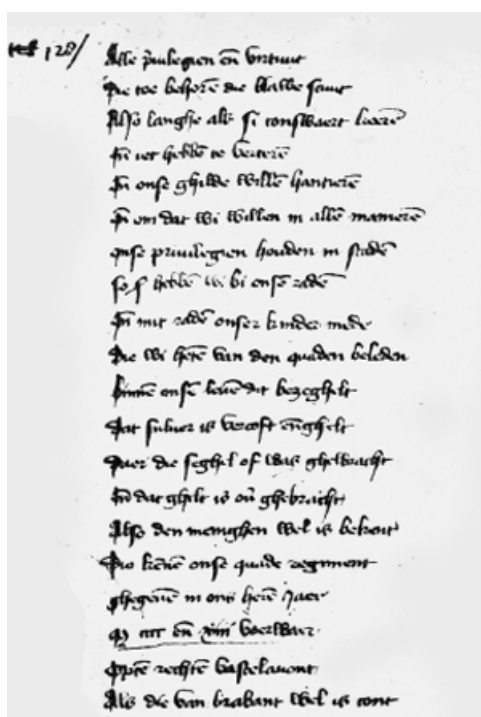 128/
Alle p̄uilegien en̄ virtuut
Die toe behorē die blawe scuut
Also langhe als si tonswaert kerē
En̄ iet hebbē te verterē
En̄ onse ghilde willē hantierē
En̄ om dat wi willen in allē manierē
onse priuilegien houden in stadē
so hebbē wi bi onsē radē
En̄ mit radē onser kinder mede
Die wi hetē van den quaden beleden
binnē onsē leuē dit bezeghelt
Dat siluer is vercoft
Daer die seghel of was ghewracht
En̄ dat ghelt is ou̅ ghebracht
Also den menighen wel is bekent
Die kēnē onse quade regiment
ghegeuē in ons herē Jaer
M cccc en̄ xiij voerwaer
optē rechtē vastelauont
Als die van brabant wel is cont